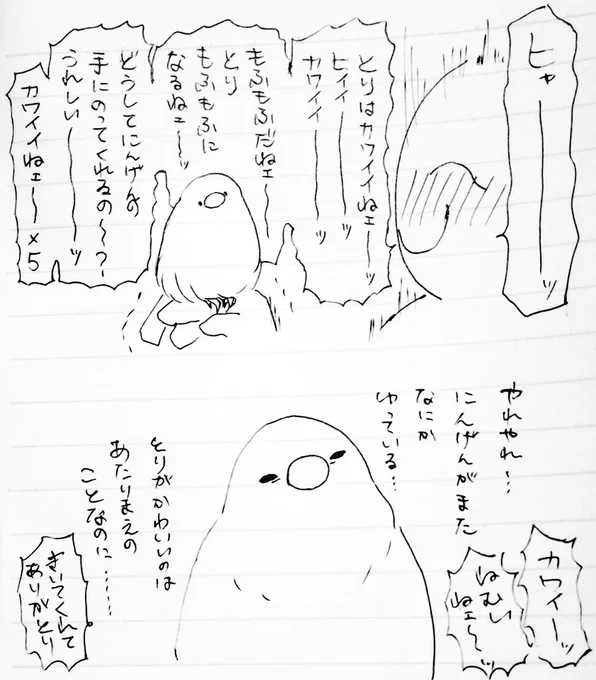 ヒャーーーーッ
とりはカワイイねェ〜〜ッ
ヒィィーーーッ
カワイイーーーッ
もふもふだねェ〜
とり
もふもふに
なるねェ〜〜ッ
どうしてにんげんの
手にのってくれるの〜〜？
うれしい〜〜〜ッ
カワイイねェ〜〜×5
やれやれ…
にんげんがまた
なにか
ゆっている…
カワイーッ
ねむい
ねェ〜〜ッ
とりがかわいいのは
あたりまえの
ことなのに……
きいてくれて
ありがとり